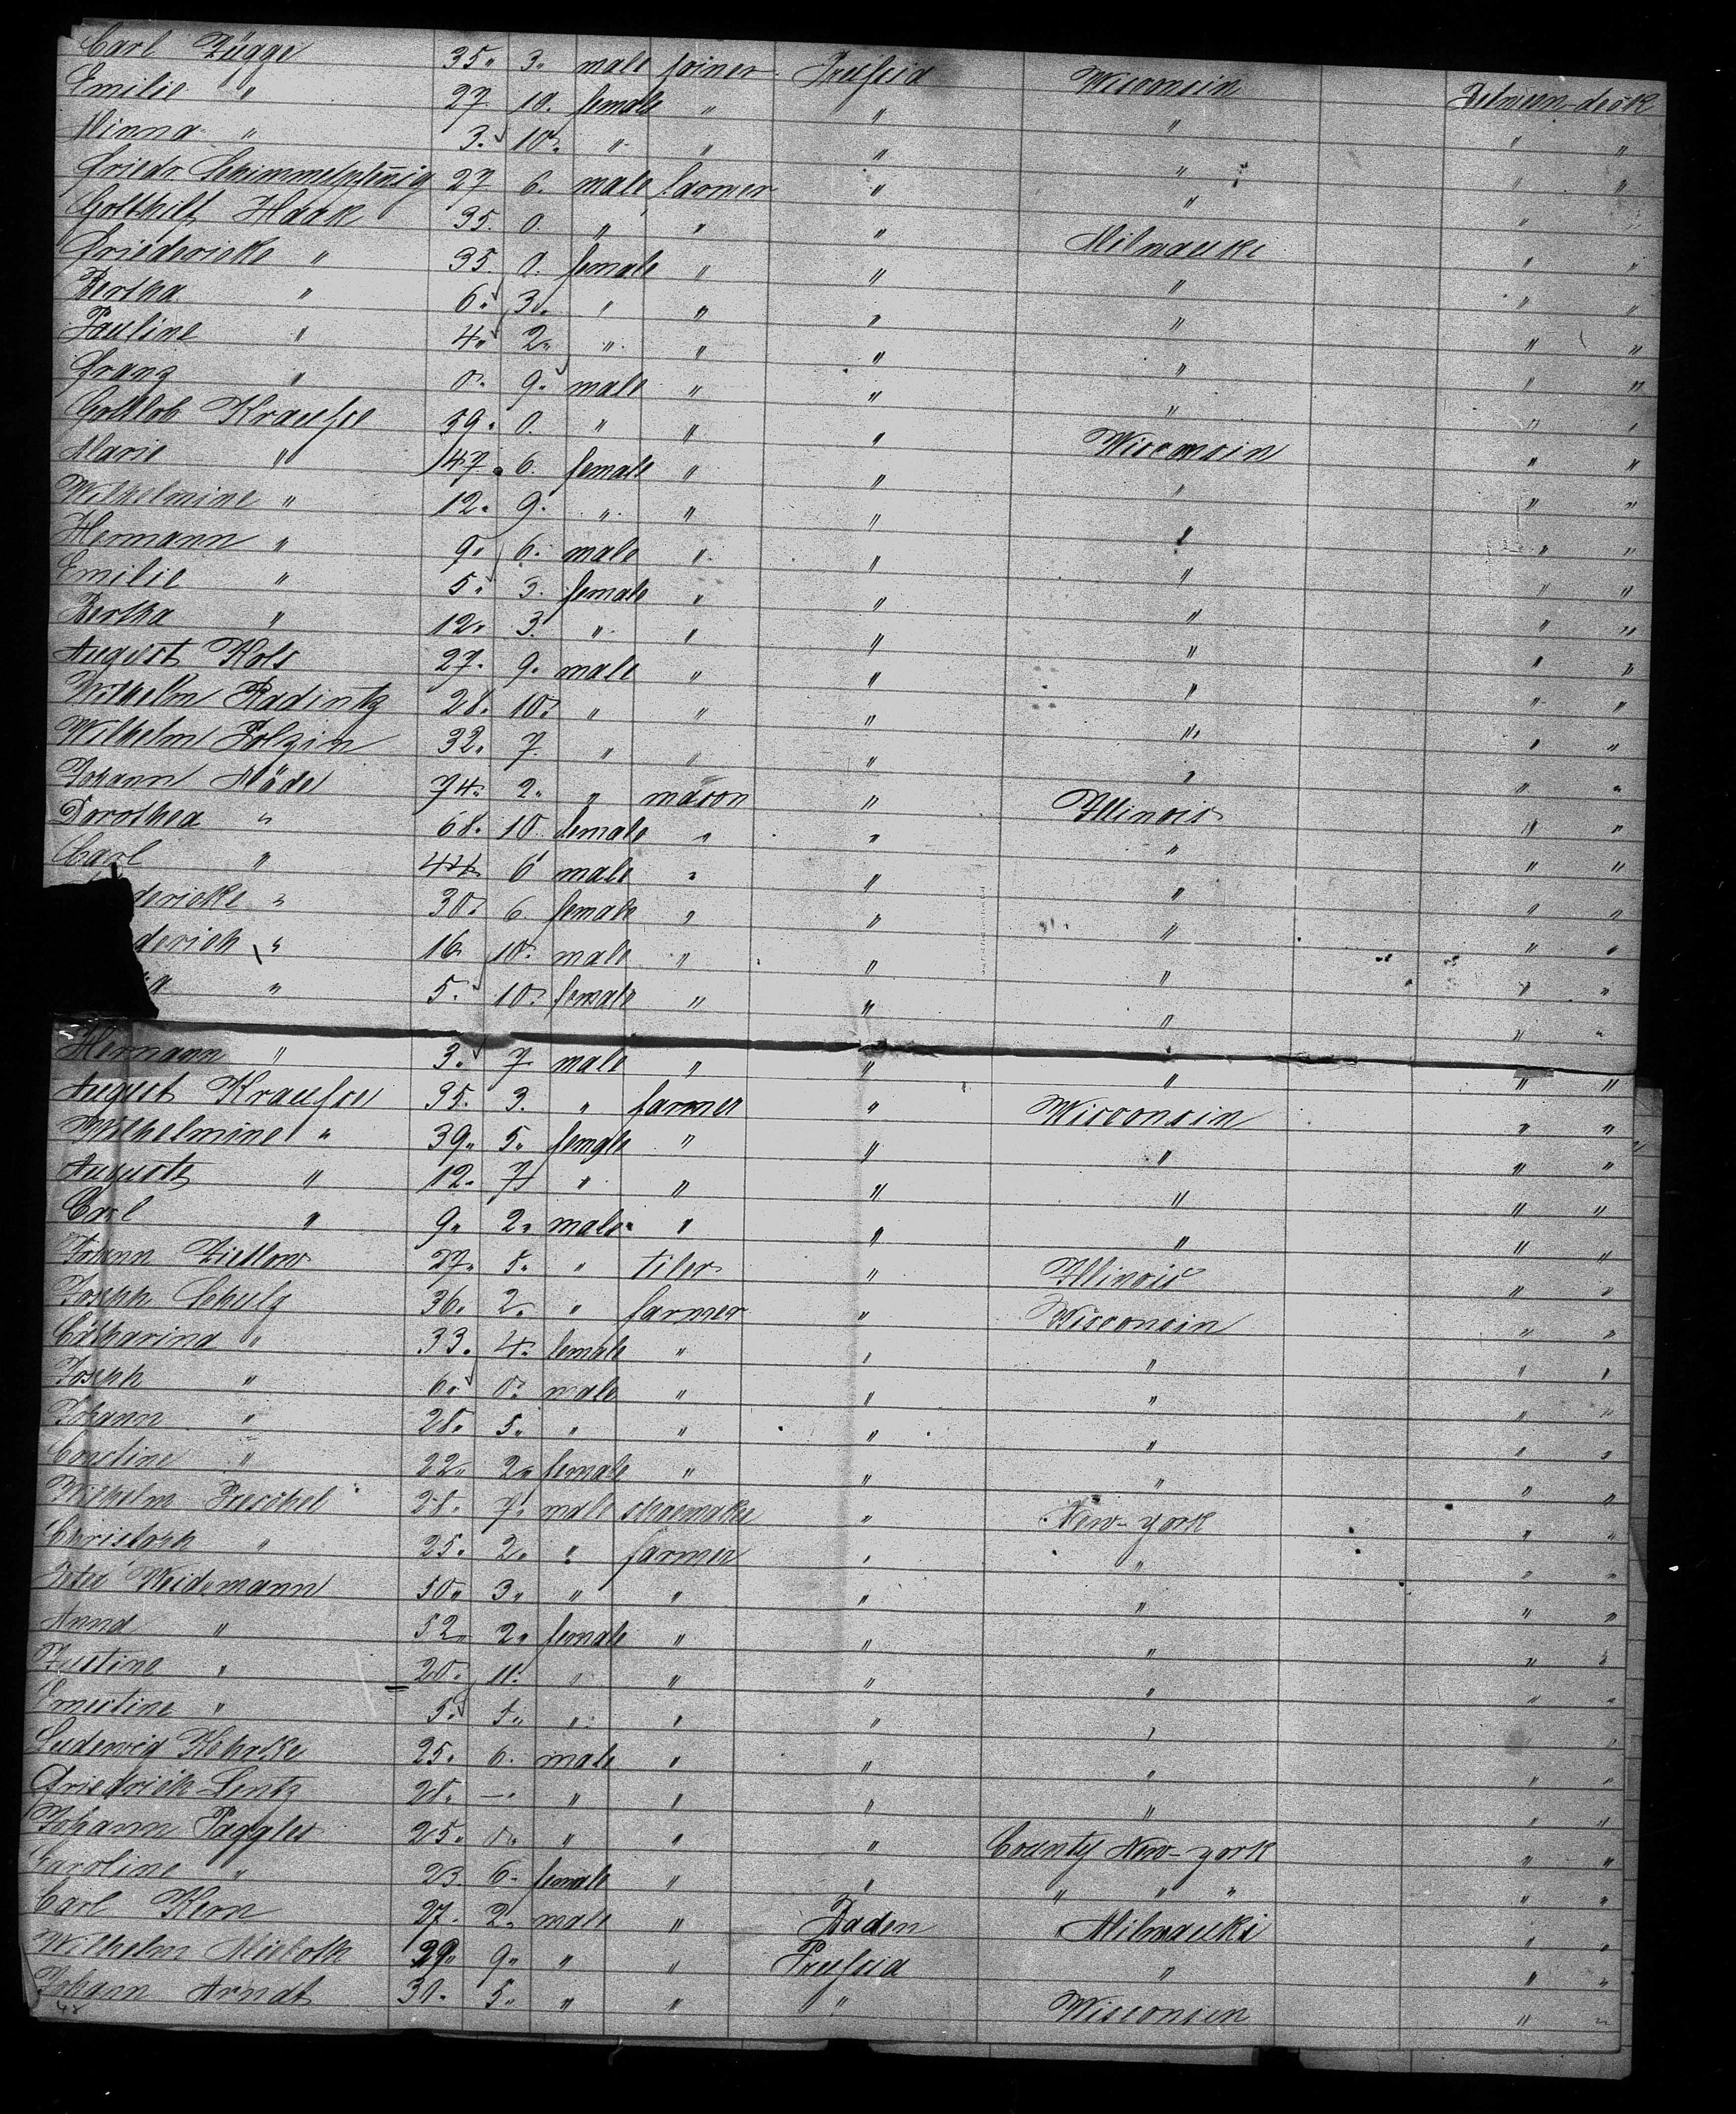 Carl Zügge 35 3 male joiner Preussia Wisconsin
Emilie " 27 10 female " " " " "
Minna " 3 10 " " " " " "
Friedr Schimmelpfennig 27 6 male farmer " " " "
Gotthilf Haak 35 0 " " " Milwauke " "
Friedericke " 35 0 female " " " " "
Bertha " 6 3 " " " " " "
Pauline " 4 2 " " " " " "
Franz " 0 9 male " " " " "
Gottlob Krausse 59 0 " " " Wisconsin " "
Marie " 47 6 female " " " " "
Wilhelmine " 12 9 " " " " " "
Hermann " 9 6 male " " " " "
Emilie " 5 3 female " " " " "
Bertha " 12 3 " " " " " "
August Kols 27 9 male " " " " "
Wilhelm Radintz 28 10 " " " " " "
Wilhelm Polzin 32 7 " " " " " "
Johann Mädel 74 2 " mason " Illinois " "
Dorothea " 68 10 female " " " " "
Carl " 44 6 male " " " " "
dericke " 30 6 female " " " " "
derich " 16 10 male " " " " "
" 5 10 female " " " " "
Hermann " 3 7 male " " " " "
August Krausse 35 3 " farmer " Wisconsin " "
Wilhelmine " 39 5 female " " " " "
Auguste " 12 7 " " " " " "
Carl " 9 2 male " " " " "
Johann Zietlow 27 5 " tiler " Illinois " "
Joseph Schulz 36 2 " farmer " Wisconsin " "
Catharina " 33 4 female " " " " "
Joseph " 6 0 male " " " " "
Johann " 28 5 " " " " " "
" 22 2 female " " " " "
Wilhelm 28 7 male shoemaker " New-york " "
Christoph " 25 2 " farmer " " " "
Weidemann 50 3 " " " " " "
Anna " 52 2 female " " " " "
Justine " 20 11 " " " " " "
Ernestine " 5 5 " " " " " "
Ludewig 25 6 male " " " " "
Friedrich Lentz 28 — " " " " " "
Johann Paggles 25 0 " " " County New-york " "
Caroline " 23 6 female " " " " " " "
Carl Kern 27 2 male " Baden Milwauki " "
Wilhelm 29 9 " " Preussia " " "
Johann Arndt 30 5 " " " " Wisconsin " "
48